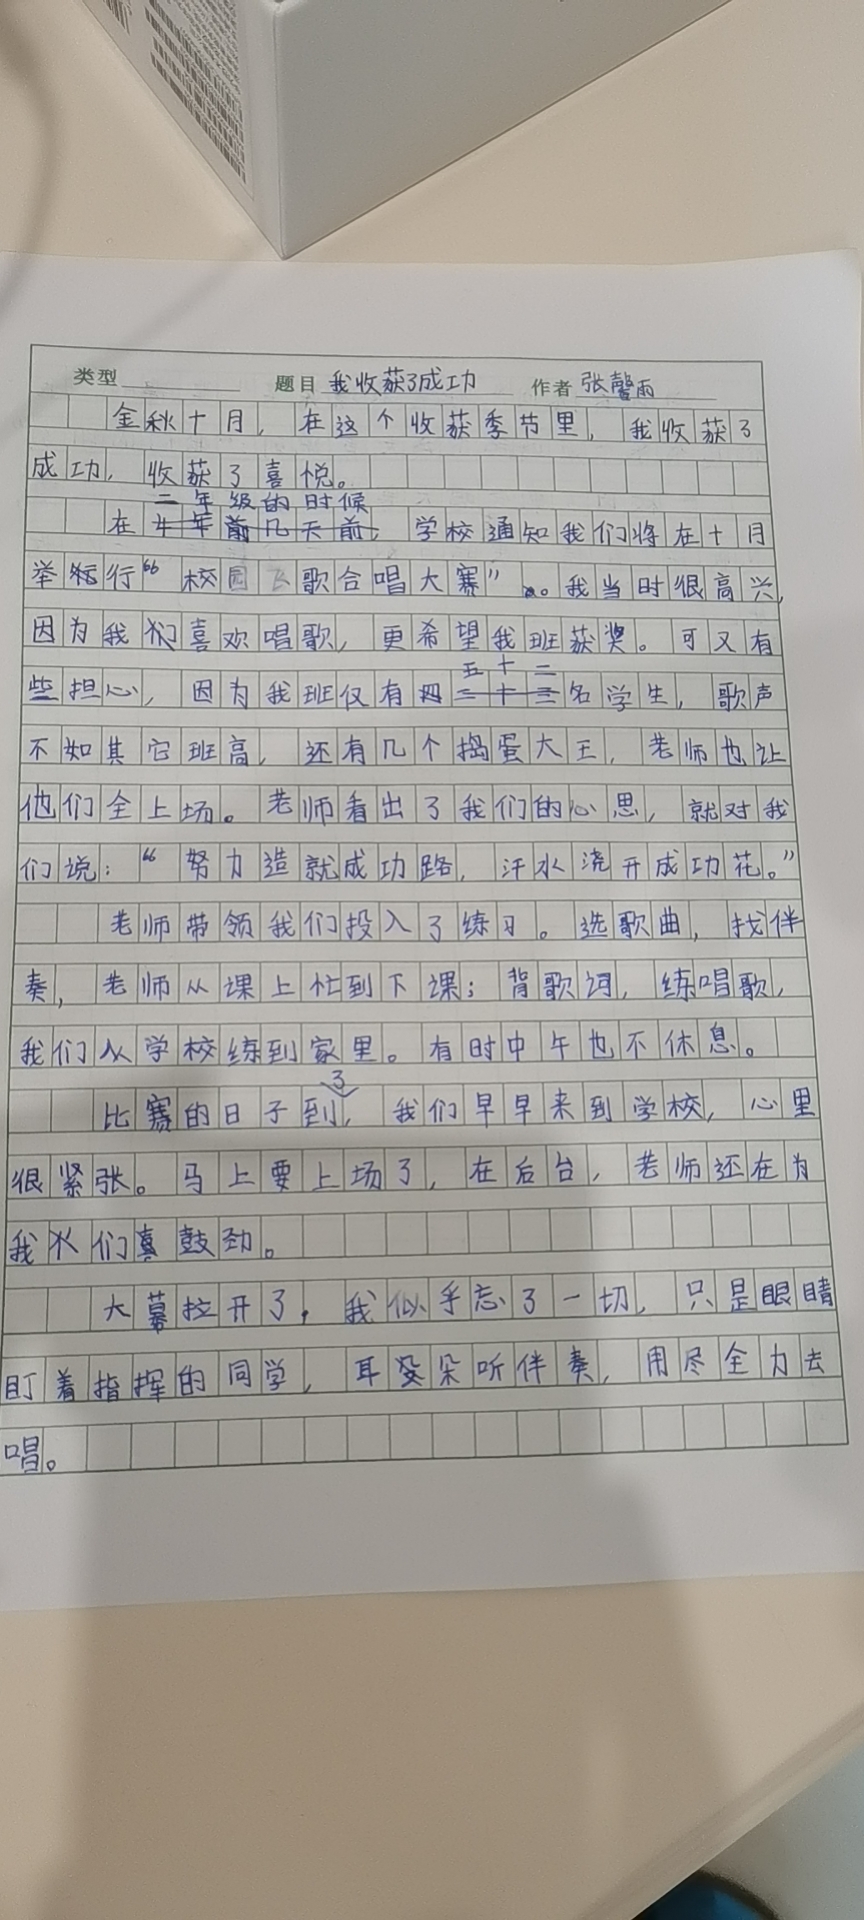 类型 题目 我收获了成功 作者 张馨雨
金秋十月，在这个收获季节里，我收获了
成功，收获了喜悦。
二年级的时候
在，学校通知我们将在十月
举行“校园歌合唱大赛”。我当时很高兴，
因为我们喜欢唱歌，更希望我班获奖。可又有
五十二
些担心，因为我班仅有名学生，歌声
不如其它班高，还有几个捣蛋大王，老师也让
他们全上场。老师看出了我们的心思，就对我
们说：“努力造就成功路，汗水浇开成功花。”
老师带领我们投入了练习。选歌曲，找伴
奏，老师从课上忙到下课；背歌词，练唱歌，
我们从学校练到家里。有时中午也不休息。
比赛的日子到了，我们早早来到学校，心里
很紧张。马上要上场了，在后台，老师还在为
我们鼓劲。
大幕拉开了，我似乎忘了一切，只是眼睛
盯着指挥的同学，耳朵听伴奏，用尽全力去
唱。